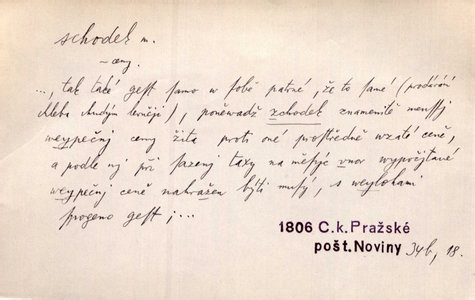 schodek m.
~ ceny.
..., tak také gest samo w sobě patrné, že to samé (prodáwání
chleba chudým lewněgi), poněwadž zchodek znamenitě menssý
weypečný ceny žita proti oné prostředně wzaté ceně
a podle nj při sazenj taxy na měsýc unor wypočjtáné
weypečný ceně nahražen býti musý, s weylohami
spogeno gest; ...
1806 C.k.Pražské
pošt.Noviny 34b, 18.